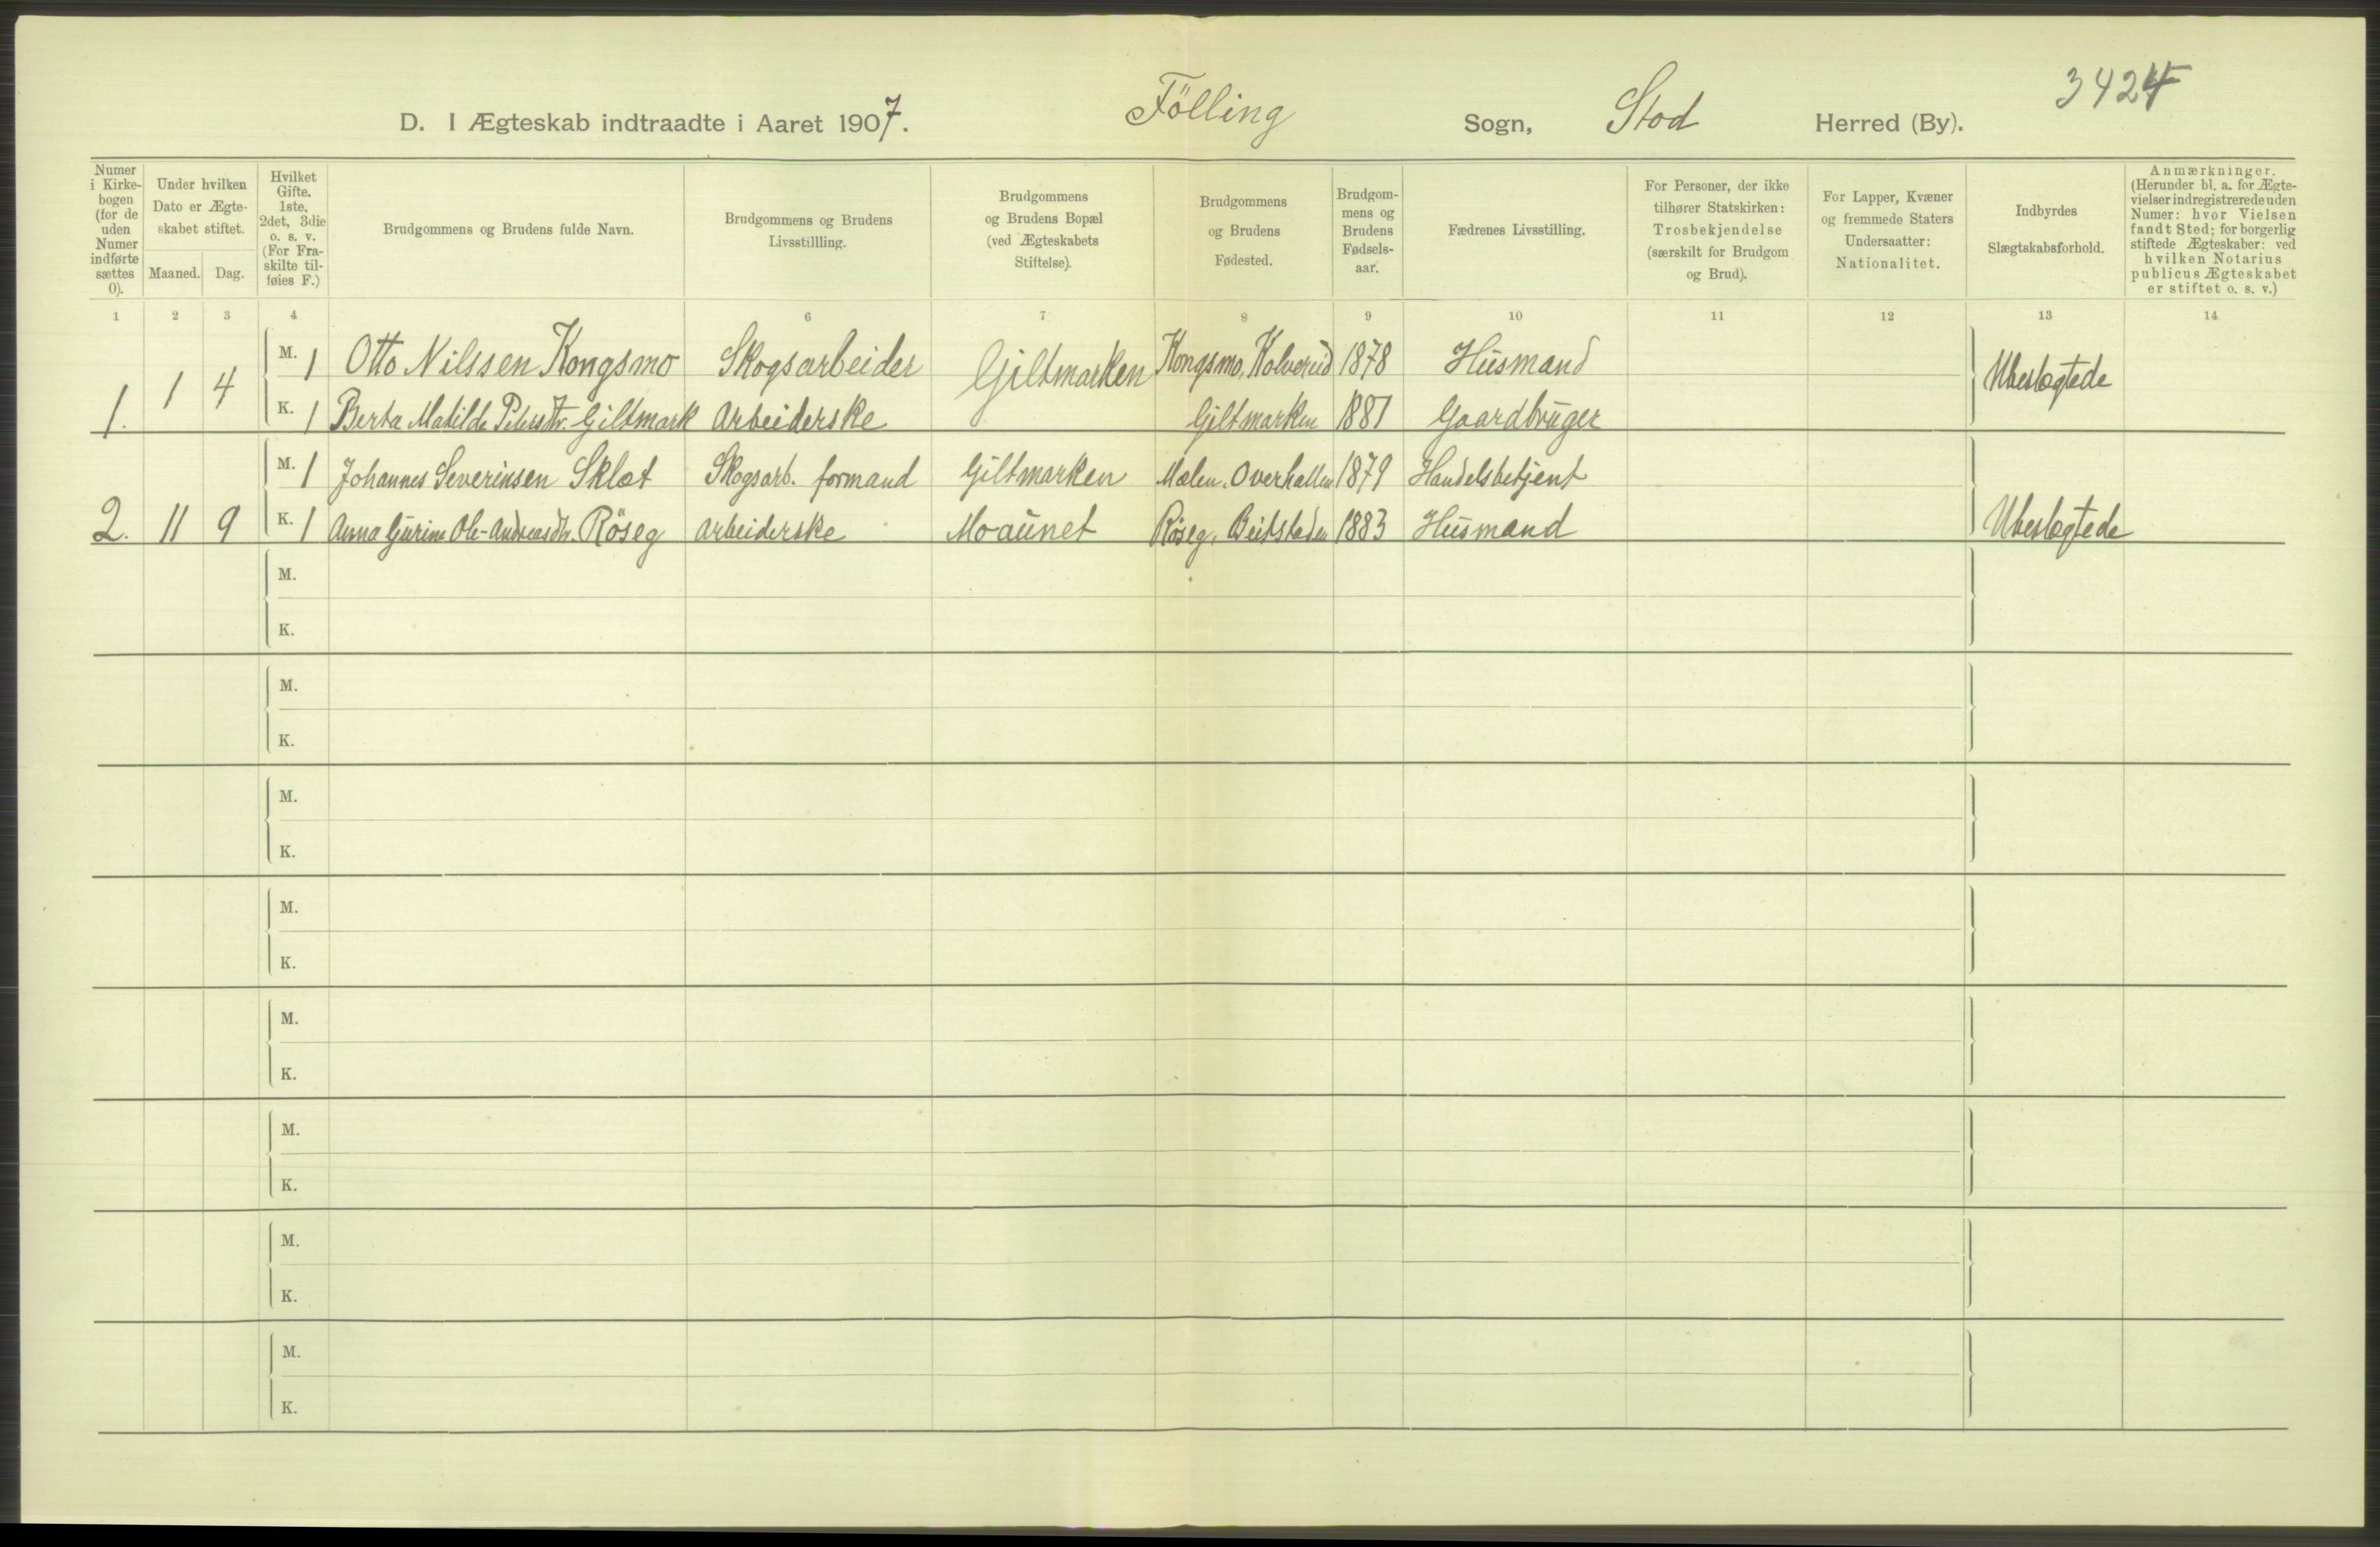 3424
D. I Ægteskab indtraadte i Aaret 1907. Fölling Sogn, Stod Herred (By).
Numer i Kirkebogen (for de uden Numer indførte sættes 0).
Under hvilken Dato er Ægteskabet stiftet.
Maaned. Dag.
Hvilket Gifte. 1ste, 2det, 3die o. s. v. (For Fraskilte tilføies F.)
Brudgommens og Brudens fulde Navn.
Brudgommens og Brudens Livsstillling.
Brudgommens og Brudens Bopæl (ved Ægteskabets Stiftelse).
Brudgommens og Brudens Fødested.
Brudgommens og Brudens Fødselsaar.
Fædrenes Livsstilling.
For Personer, der ikke tilhører Statskirken: Trosbekjendelse (særskilt for Brudgom og Brud).
For Lapper, Kvæner og fremmede Staters Undersaatter: Nationalitet.
Indbyrdes Slægtskabsforhold.
Anmærkninger. (Herunder bl. a. for Ægtevielser indregistrerede uden Numer: hvor Vielsen fandt Sted; for borgerlig stiftede Ægteskaber: ved hvilken Notarius publicus Ægteskabet er stiftet o. s. v.)
1 2 3 4 6 7 8 9 10 11 12 13 14
M. 1 Otto Nilssen Kongsmo Skogsarbeider Giltmarken Kongsmo, Kolvereid 1878 Husmand
1. 1 4 Ubeslægtede
K. 1 Berta Matilde Petersdtr. Giltmark Arbeiderske Giltmarken 1881 Gaardbruger
M. 1 Johannes Severinsen Sklæt Skogsarb. formand Giltmarken Mælen, Overhallen 1879 Handelsbetjent
2. 11 9 K. 1 Anna Gurine Ole-Andreasdtr. Röseg Arbeiderske Moaunet Röseg, Beitstaden 1883 Husmand Ubeslægtede
M.
K.
M.
K.
M.
K.
M.
K.
M.
K.
M.
K.
M.
K.
M.
K.